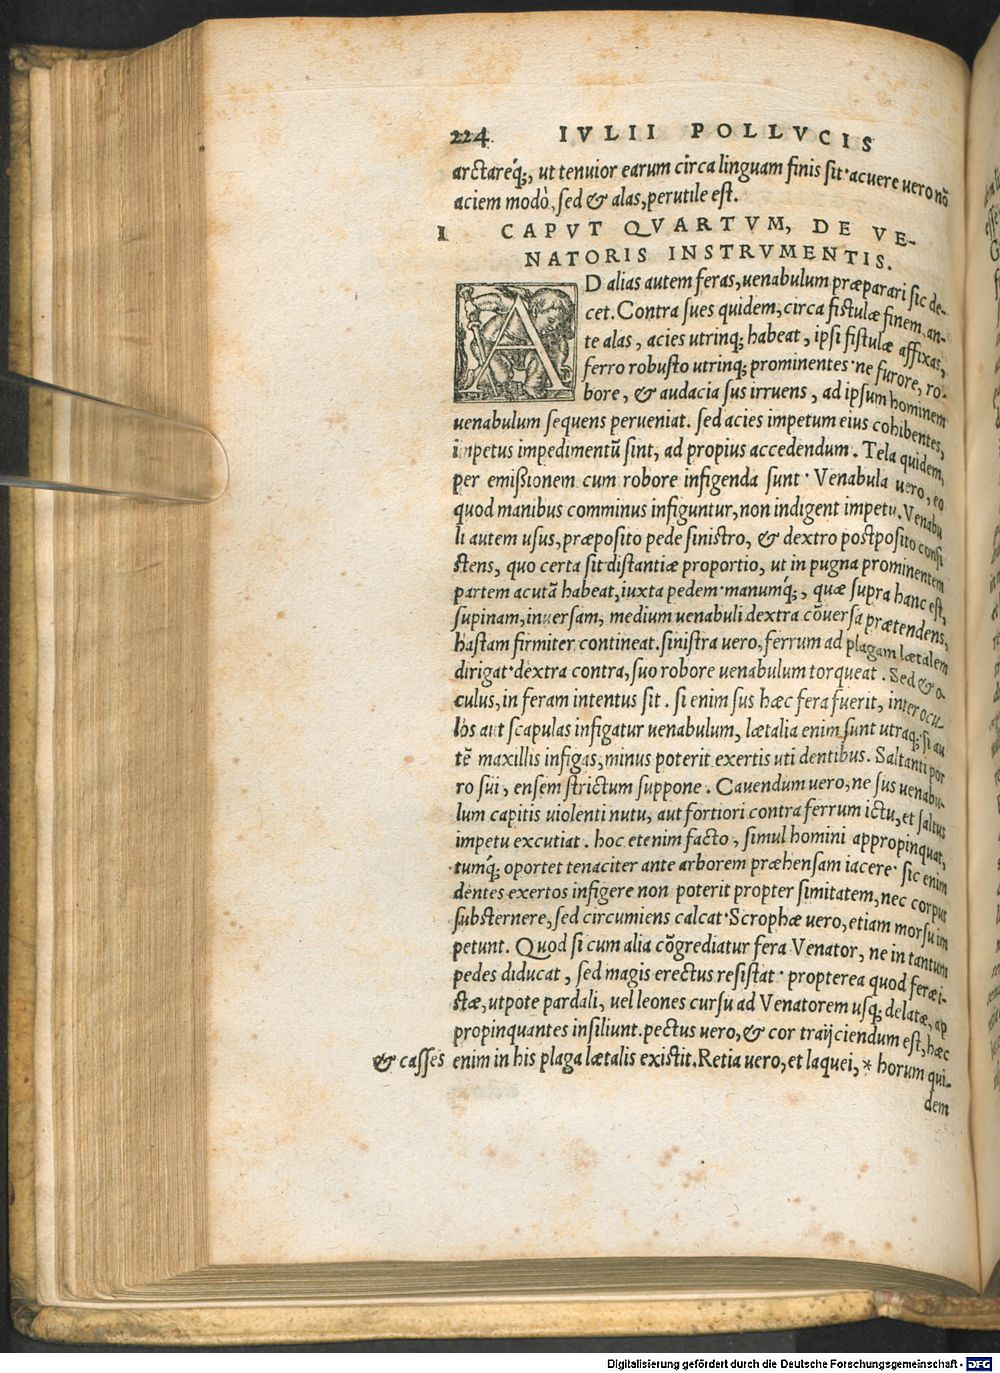 224 IVLII POLLVCIS
arctareq́;, ut tenuior earum circa linguam finis sit· acuere uero nō
aciem modò, sed & alas, perutile est.
I CAPVT QVARTVM, DE VE-
NATORIS INSTRVMENTIS.
AD alias autem feras, uenabulum præparari sic de-
cet. Contra sues quidem, circa fistulæ finem, an-
te alas, acies utrinq; habeat, ipsi fistulæ affixas,
ferro robusto utrinq; prominentes· ne furore, ro-
bore, & audacia sus irruens, ad ipsum hominem
uenabulum sequens perueniat. sed acies impetum eius cohibentes,
impetus impedimentū sint, ad propius accedendum. Tela quidem,
per emißionem cum robore infigenda sunt· Venabula uero, eo
quod manibus comminus infiguntur, non indigent impetu. Venabu
li autem usus, præposito pede sinistro, & dextro postposito consi
stens, quo certa sit distantiæ proportio, ut in pugna prominentem
partem acutā habeat, iuxta pedem· manumq́;, quæ supra hanc est,
supinam, inuersam, medium uenabuli dextra cōuersa prætendens,
hastam firmiter contineat. sinistra uero, ferrum ad plagam lætalem
dirigat· dextra contra, suo robore uenabulum torqueat. Sed & o-
culus, in feram intentus sit. si enim sus hæc fera fuerit, inter ocu-
los aut scapulas infigatur uenabulum, lætalia enim sunt utraq; si au
tē maxillis infigas, minus poterit exertis uti dentibus. Saltanti por
ro sui, ensem strictum suppone. Cauendum uero, ne sus uenabu-
lum capitis uiolenti nutu, aut fortiori contra ferrum ictu, et saltus
impetu excutiat. hoc etenim facto, simul homini appropinquat,
tumq́; oportet tenaciter ante arborem præhensam iacere· sic enim
dentes exertos infigere non poterit propter simitatem, nec corpus
substernere, sed circumiens calcat· Scrophæ uero, etiam morsu im
petunt. Quod si cum alia cōgrediatur fera Venator, ne in tantum
pedes diducat, sed magis erectus resistat· propterea quod feræ i-
stæ, utpote pardali, uel leones cursu ad Venatorem usq; delatæ, ap
propinquantes insiliunt. pectus uero, & cor traijciendum est, hæc
& casses enim in his plaga lætalis existit. Retia uero, et laquei, * horum qui-
dem
Digitalisierung gefördert durch die Deutsche Forschungsgemeinschaft - DFG